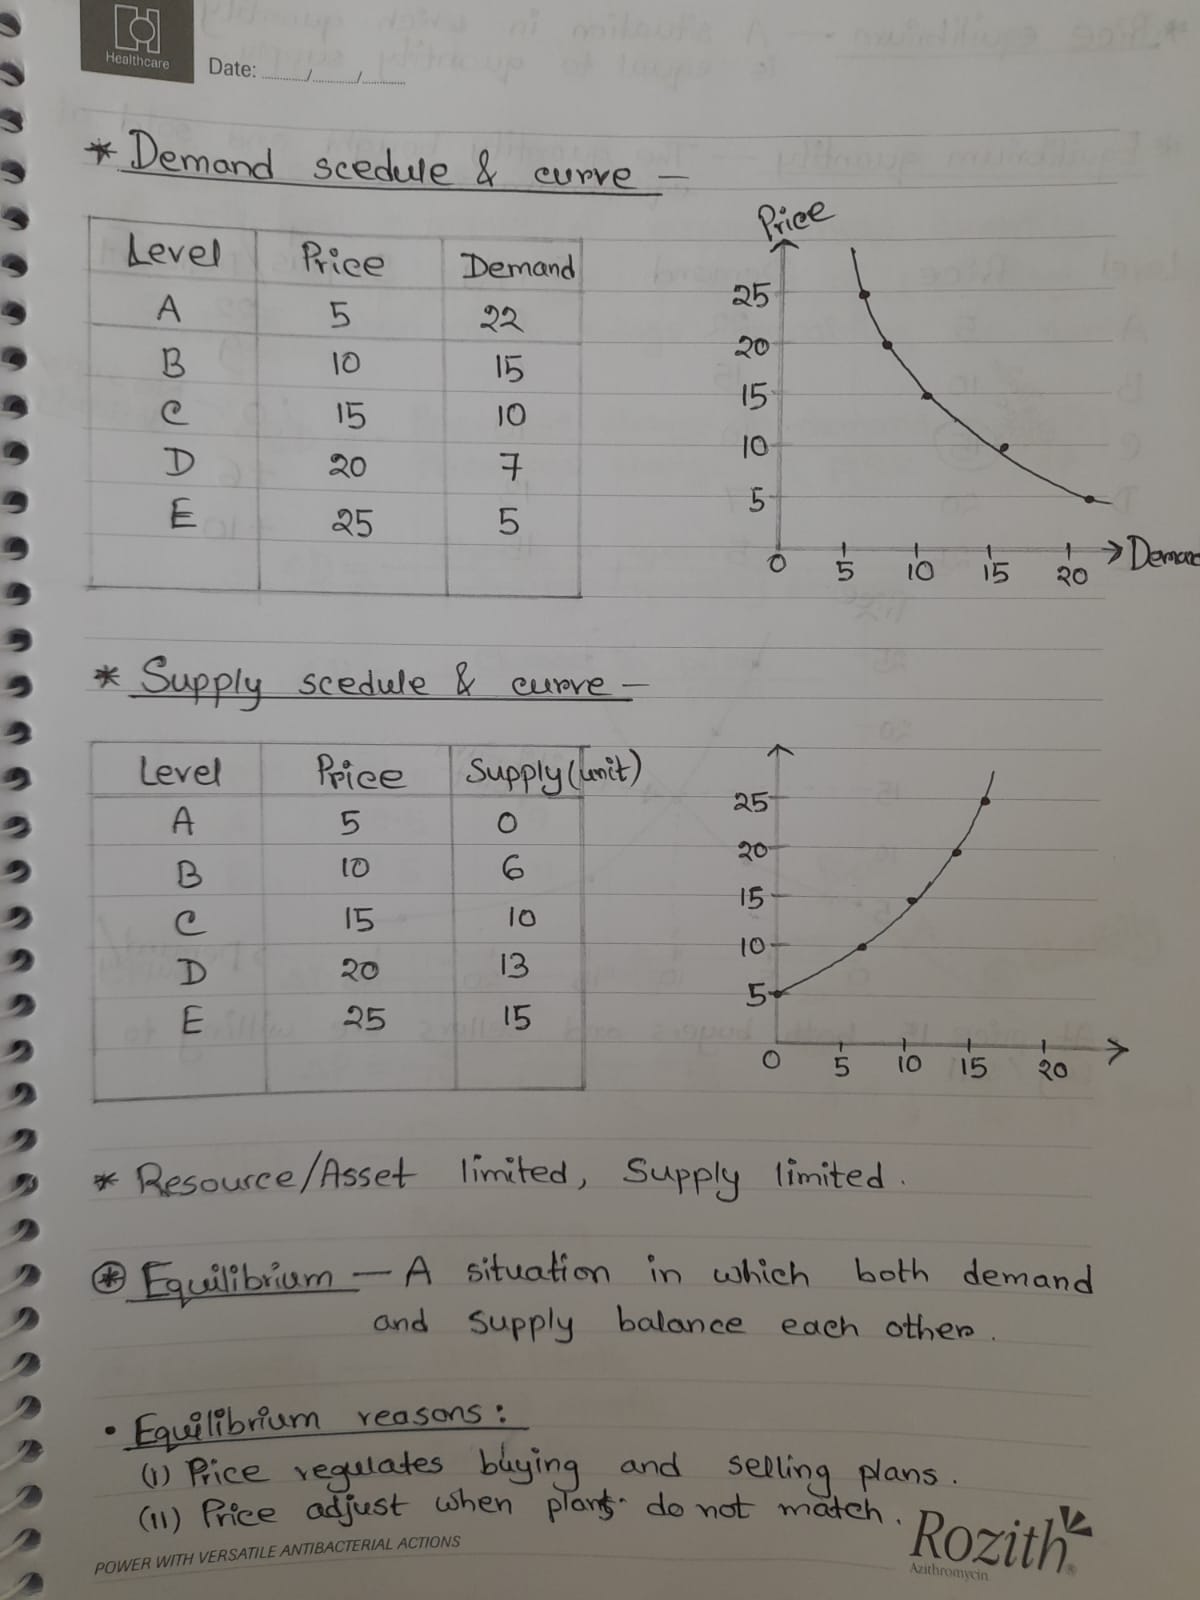 Healthcare
Date: ____/____/____
* Demand scedule & curve —
Level Price Demand
A 5 22
B 10 15
C 15 10
D 20 7
E 25 5
Price
25
20
15
10
5
0 5 10 15 20 Demand
* Supply scedule & curve —
Level Price Supply (unit)
A 5 0
B 10 6
C 15 10
D 20 13
E 25 15
25
20
15
10
5
0 5 10 15 20
* Resource/Asset limited, Supply limited.
* Equilibrium — A situation in which both demand
and supply balance each other.
• Equilibrium reasons:
(i) Price regulates buying and selling plans.
(ii) Price adjust when plans do not match.
POWER WITH VERSATILE ANTIBACTERIAL ACTIONS
Rozith®
Azithromycin